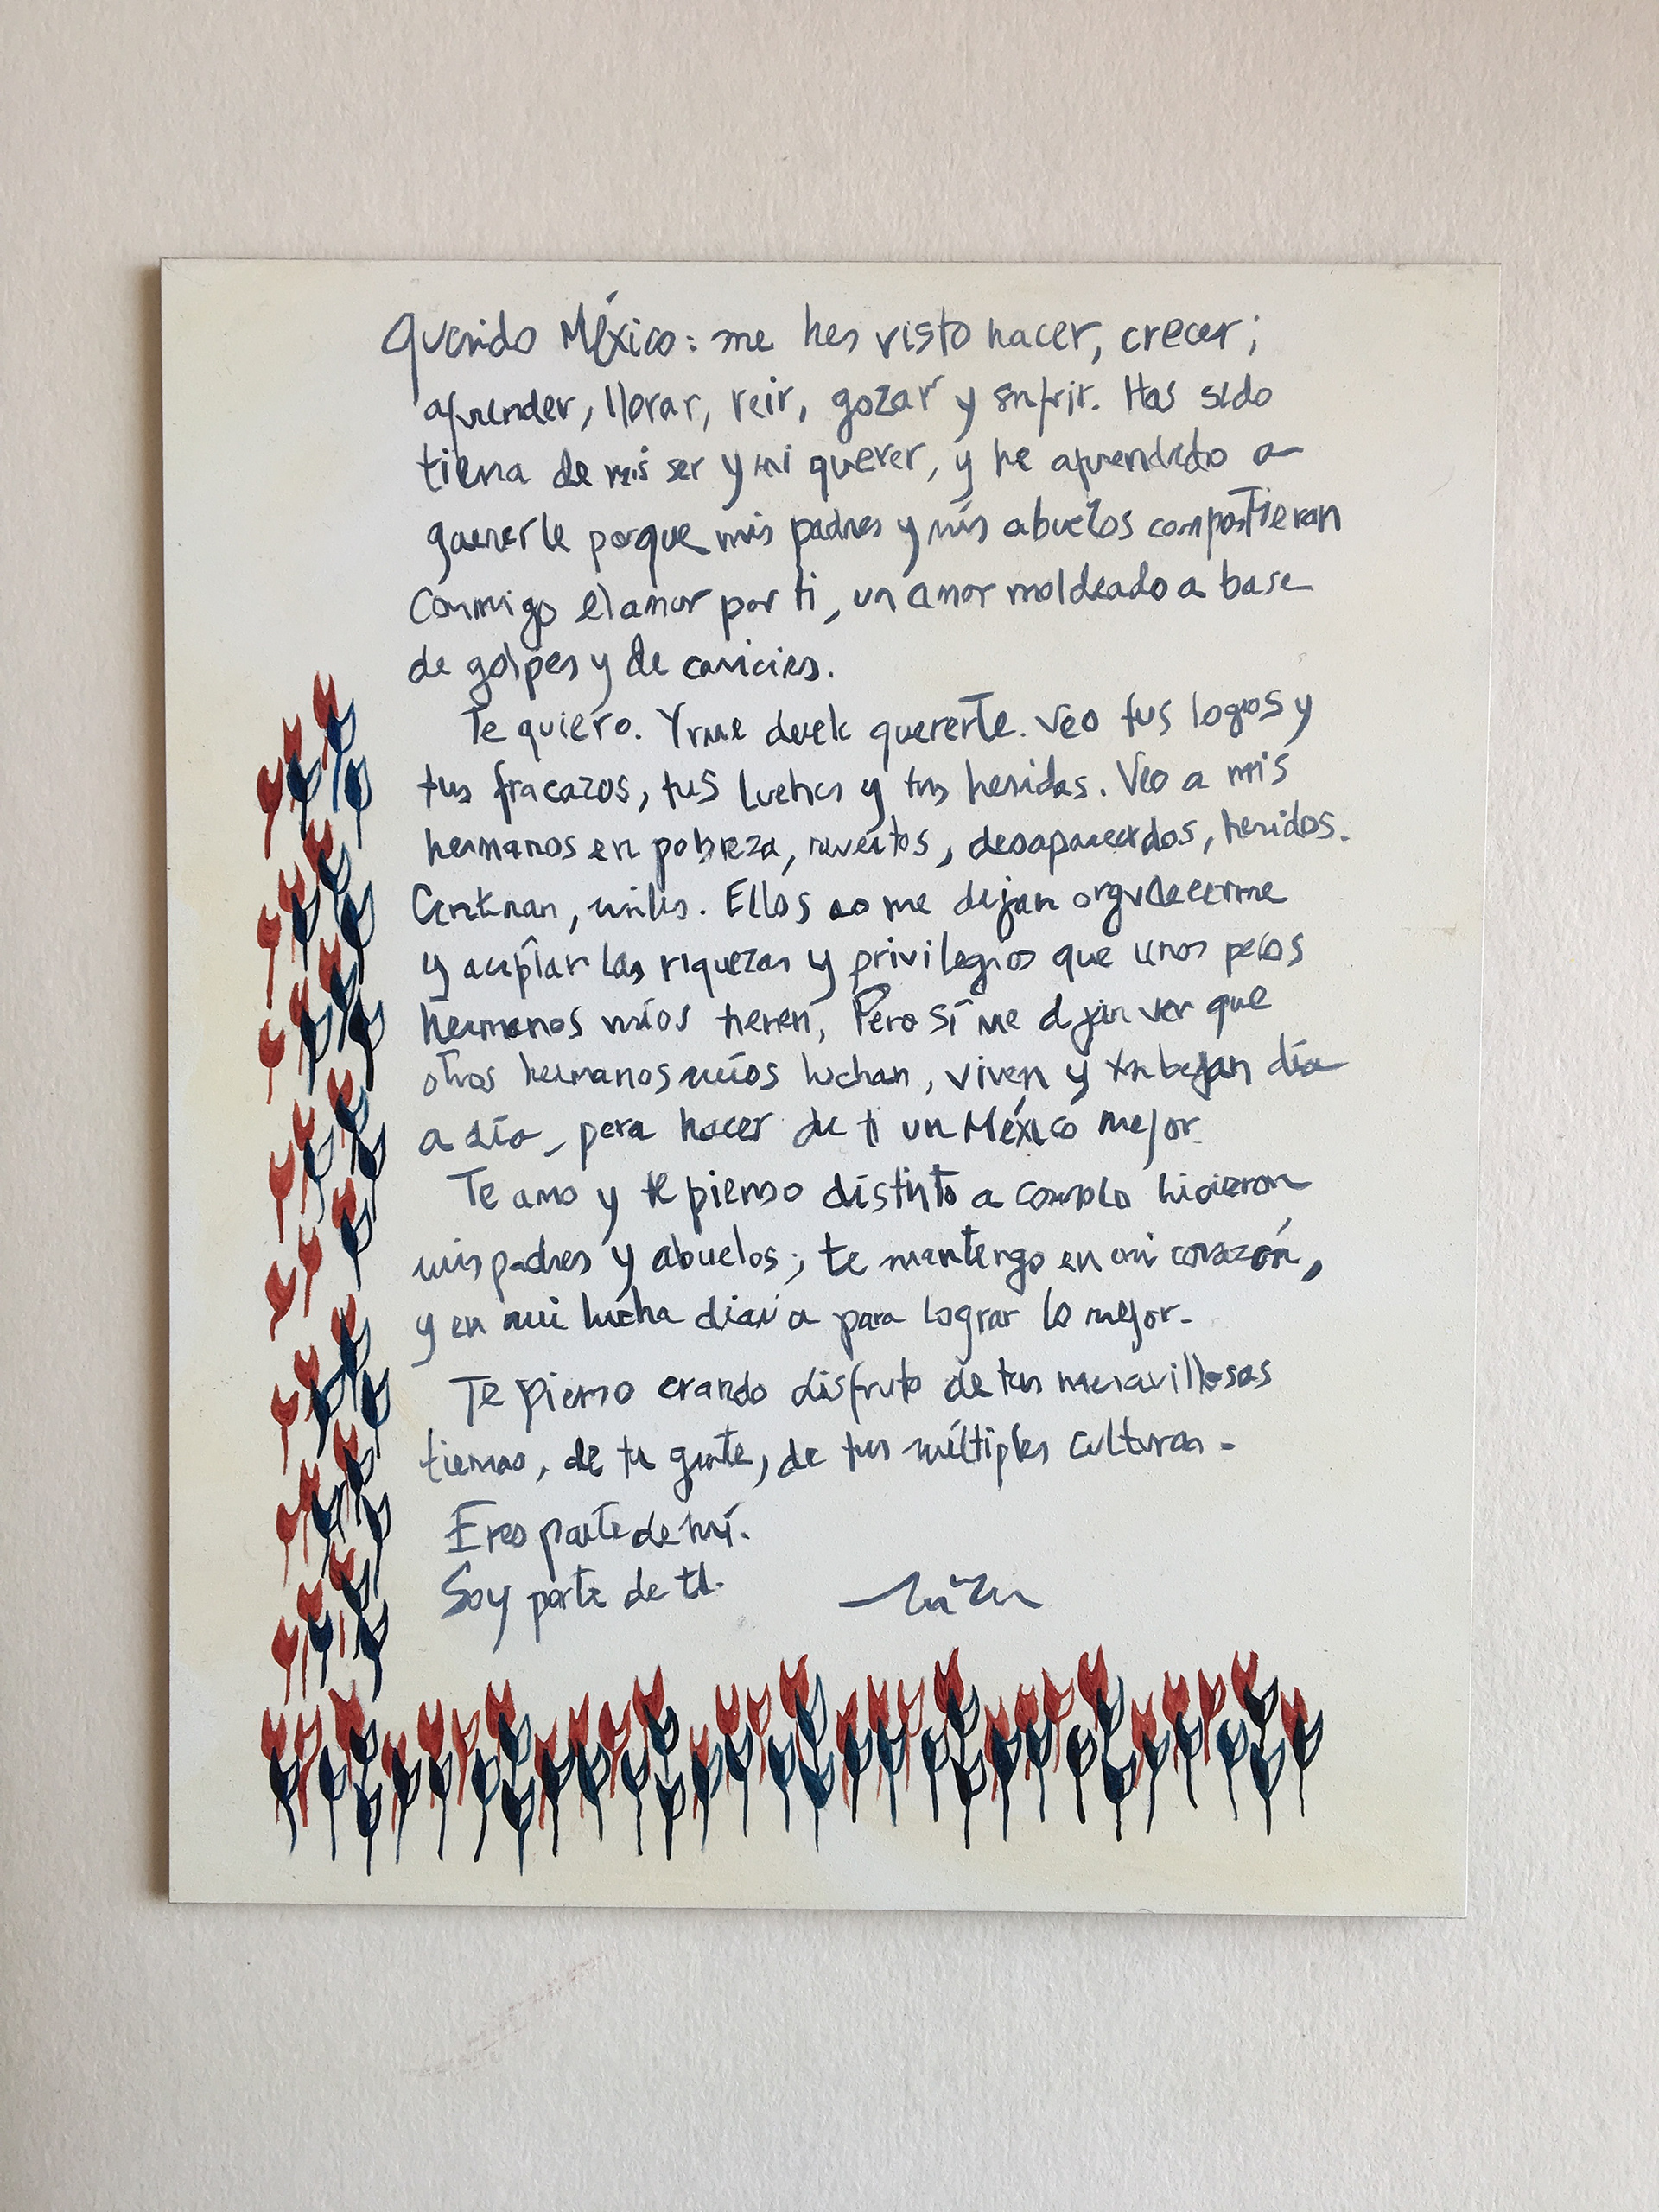 Querido México: me has visto nacer, crecer;
aprender, llorar, reir, gozar y sufrir. Has sido
tierra de mis ser y mi querer, y he aprendido a
quererte porque mis padres y mis abuelos compartieran
conmigo el amor por ti, un amor moldeado a base
de golpes y de caricias.
Te quiero. Y me duele quererte. Veo tus logros y
tus fracazos, tus luchas y tus heridas. Veo a mis
hermanos en pobreza, muertos, desaparecidos, heridos.
Centenan, miles. Ellos no me dejan orgullecerme
y aceptar las riquezas y privilegios que unos pocos
hermanos míos tienen, Pero sí me dejan ver que
otros hermanos míos luchan, viven y trabajan día
a día, para hacer de ti un México mejor.
Te amo y te pienso distinto a como lo hicieron
mis padres y abuelos; te mantengo en mi corazón,
y en mi lucha diaria para lograr lo mejor.
Te pienso cuando disfruto de tus maravillosas
tierras, de tu gente, de tus múltiples culturas.
Eres parte de mí.
Soy parte de ti.